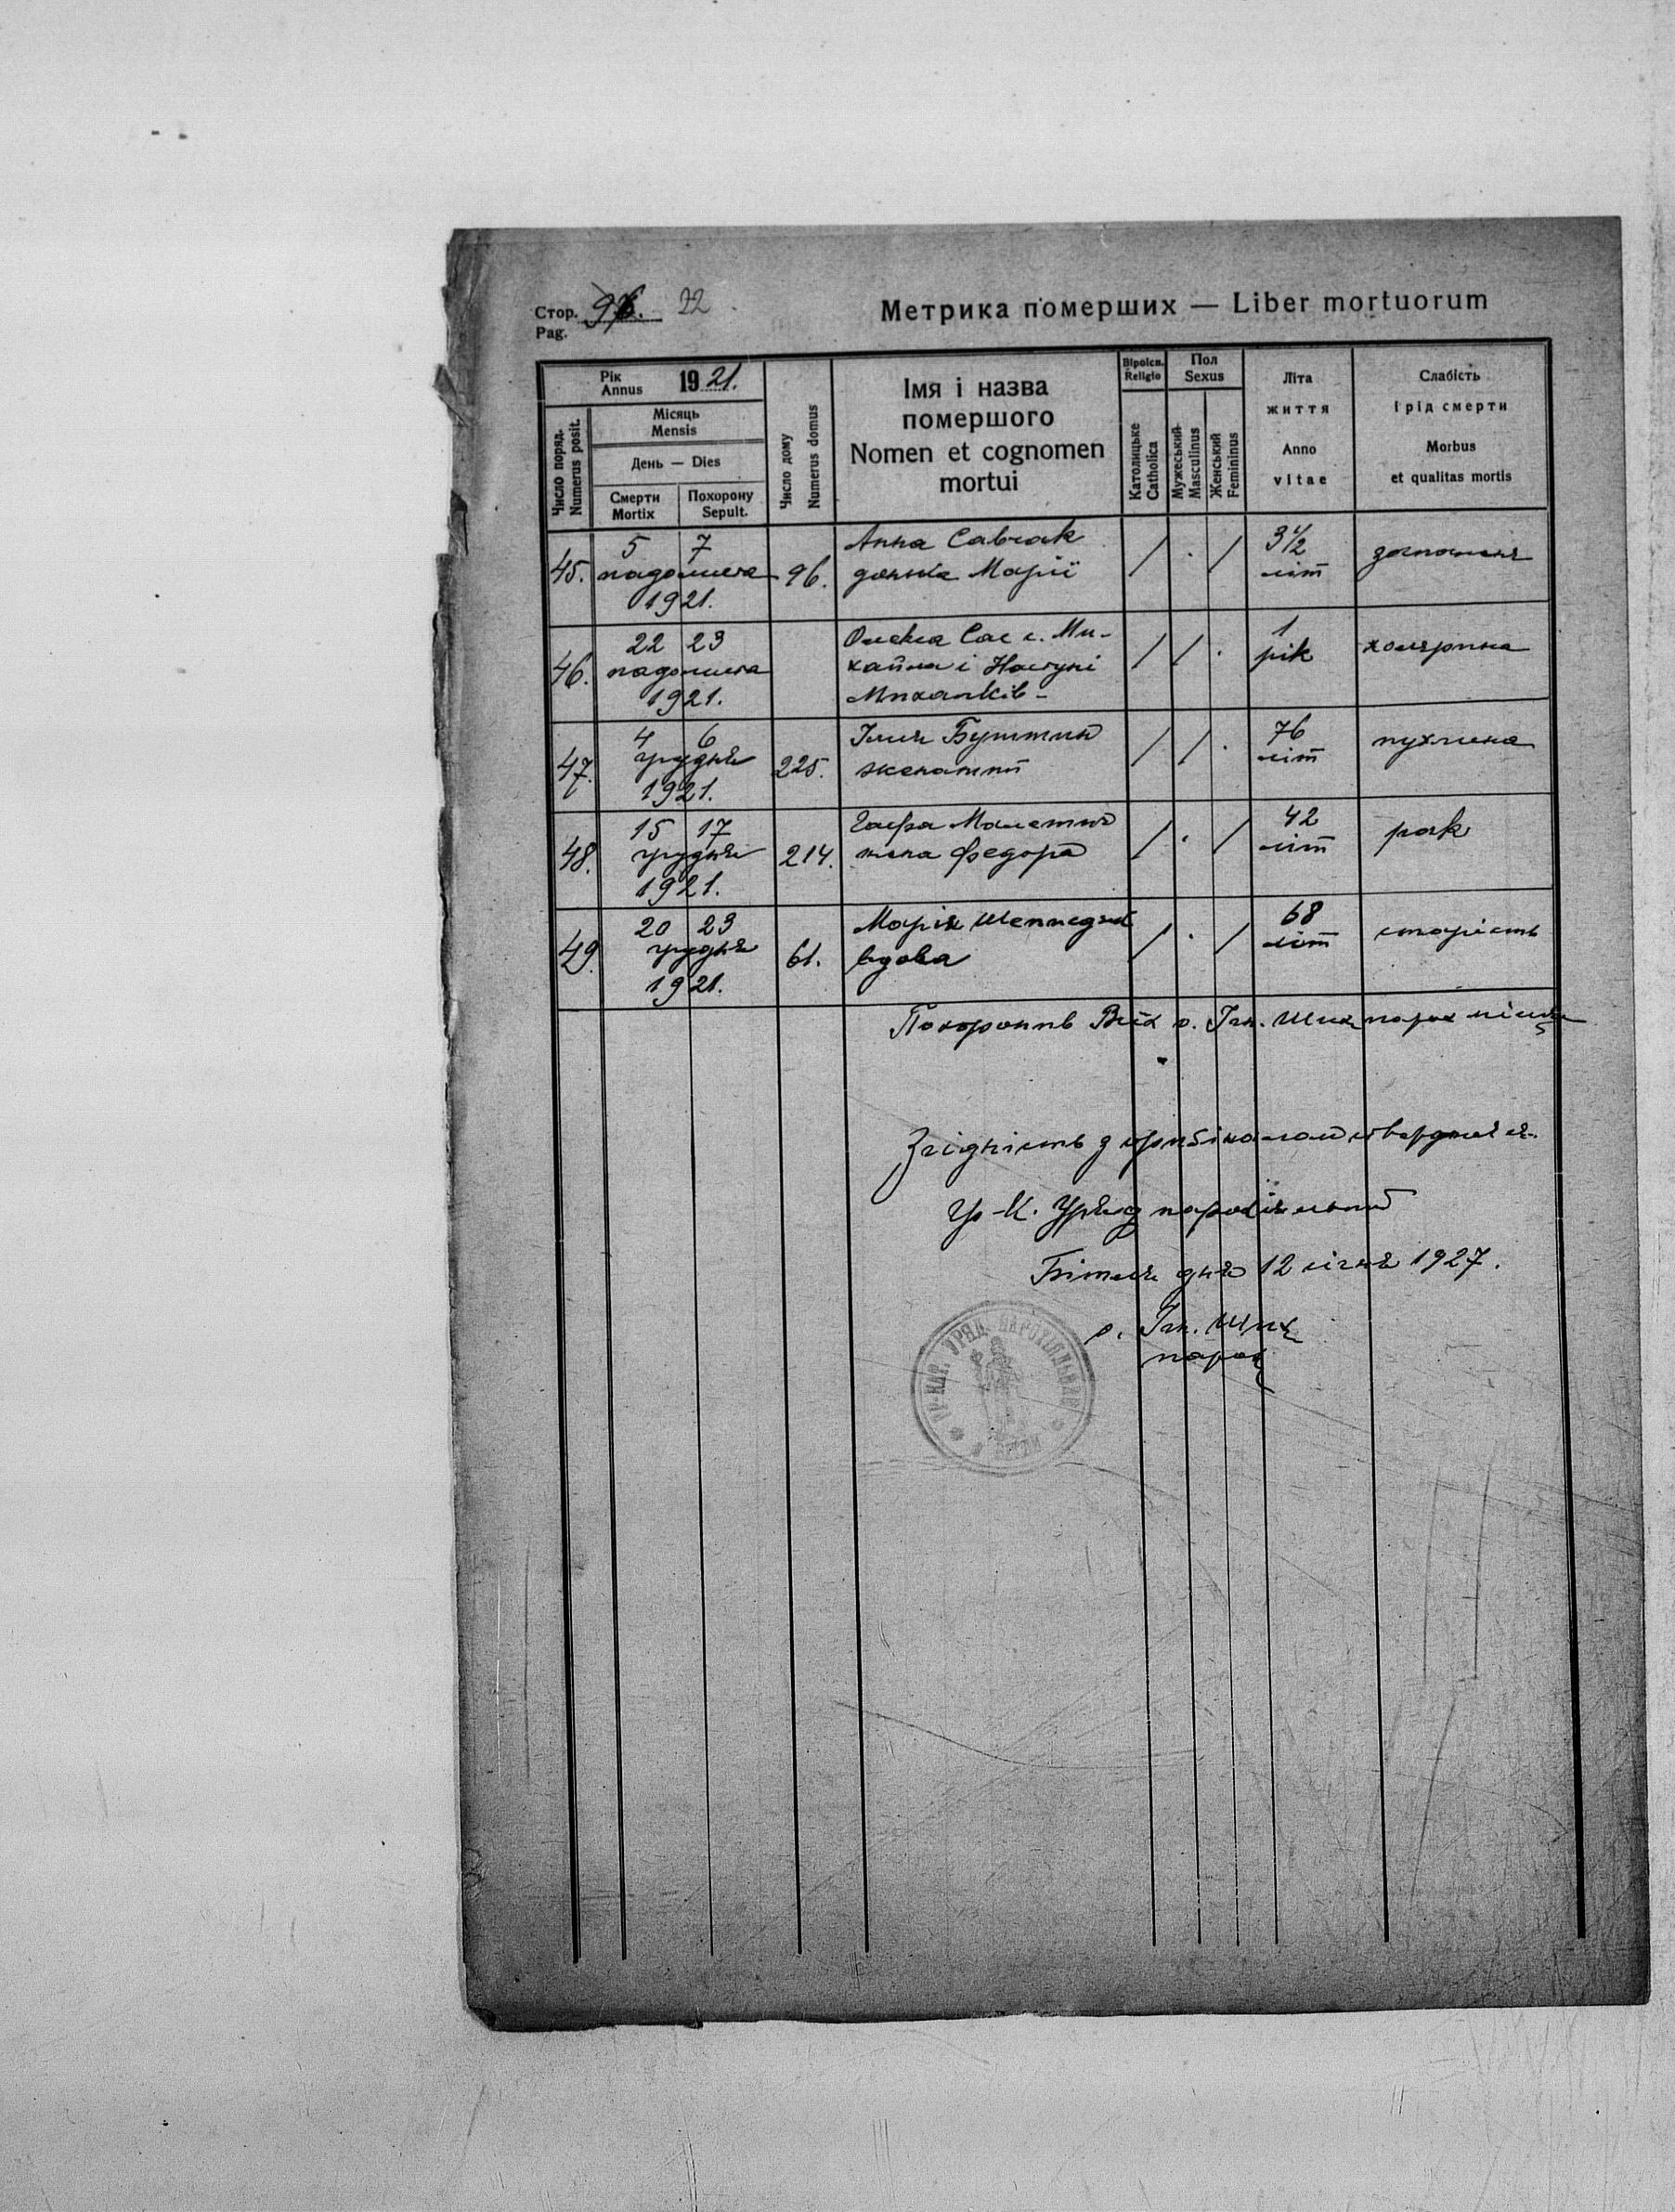 Стор. 96. 22
Pag.
Метрика померших — Liber mortuorum
Рік Annus 1921.
Місяць
Mensis
День — Dies
Число поряд. Numerus posit.
Смерти Mortix
Похорону Sepult.
Число дому Numerus domus
Імя і назва
помершого
Nomen et cognomen
mortui
Віроісп. Religio
Католицьке Catholica
Пол Sexus
Мужеський Masculinus
Женський Femininus
Літа
життя
Anno
vitae
Слабість
і рід смерти
Morbus
et qualitas mortis
45. 5 7 падолиста 1921. 96. Анна Савчак / . / 3½ літ
донька Марії
46. 22 23 падолиста 1921. Олекса Сас с. Ми- / / . 1 рік холерина
хайла і Настуні
Михалків -
47. 4 6 грудня 1921. 225. Ілия Буштин / / . 76 літ пухлина
женатий
48. 15 17 грудня 1921. 214. / . / 42 літ рак
жена Федора
49. 20 23 грудня 1921. 61. Марія / . / 68 літ старість
вдова
Похоронив Всіх о. Ігн. Ших парох місця
Згідність з стверджая ся.
Гр-К. Уряд парохіяльний
Бітля дня 12 січня 1927.
о. Ігн. Ших
парох
УРЯД ПАРОХІЯЛЬНИЙ